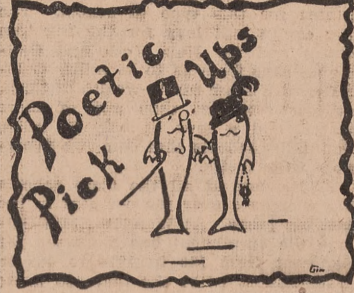 Poetic
Pick Ups